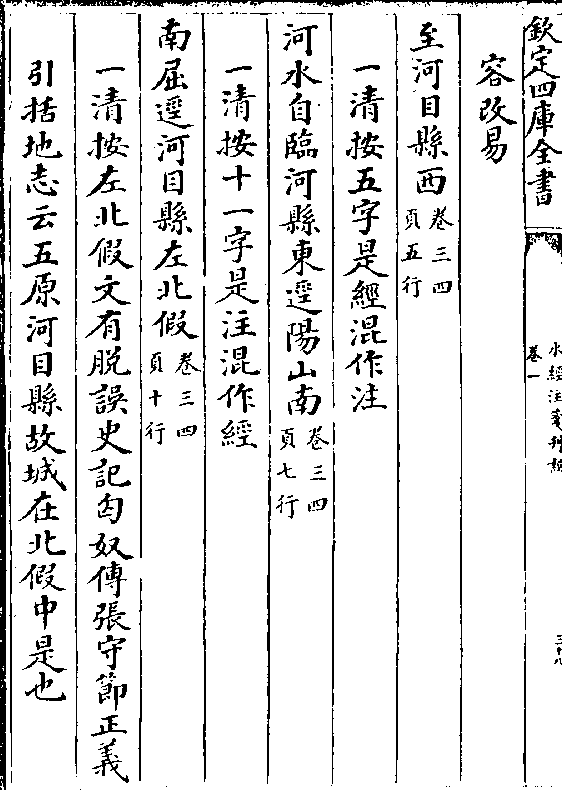 欽定四庫全書
水經注箋刊誤
卷一
三十八
容改易
至河目縣西卷三四頁五行
一清按五字是經混作注
河水自臨河縣東逕陽山南卷三四頁七行
一清按十一字是注混作經
南屈逕河目縣左北假卷三四頁十行
一清按左北假文有脱誤史記匈奴傳張守節正義
引括地志云五原河目縣故城在北假中是也